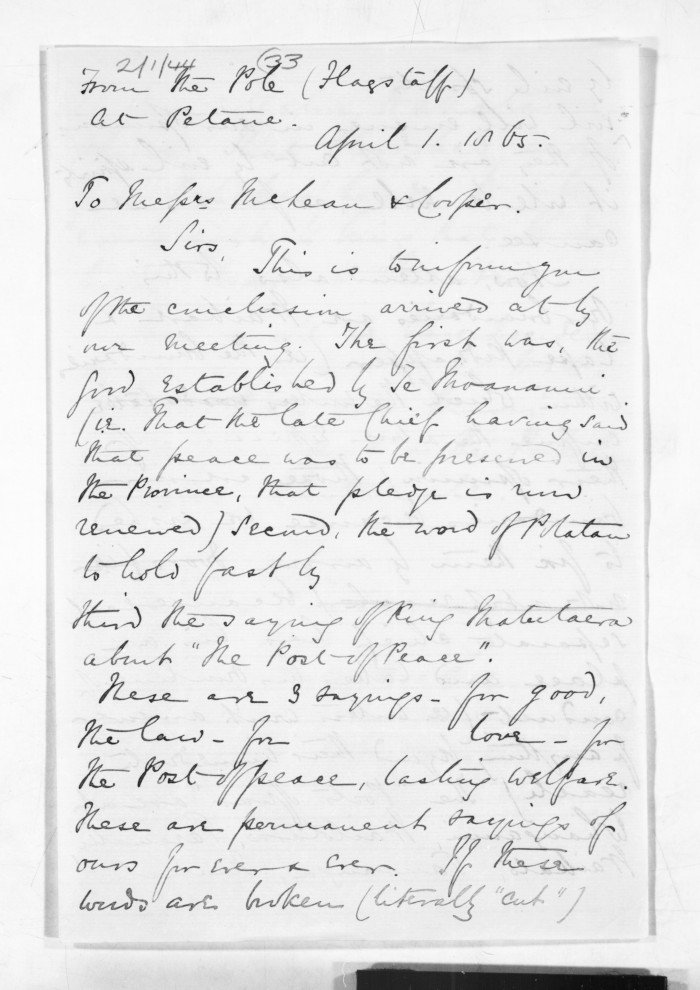 2/1/44 33
From the Pole (Flagstaff)
At Petane.
April 1. 1865.
To Messrs McLean & Cooper.
Sirs, This is to inform you
of the conclusion arrived at by
our meeting. The first was, the
good established by Te Moananui
(i.e. That the late Chief having said
that peace was to be preserved in
the Province, that pledge is now
renewed) Second, the word of Potatau
to hold fast by
third the saying of King Matutaera
about "The Post of Peace".
These are 3 sayings - for good,
the law - for love - for
the Post of peace, lasting welfare.
These are permanent sayings of
ours for ever & ever. If these
words are broken (literally "cut")